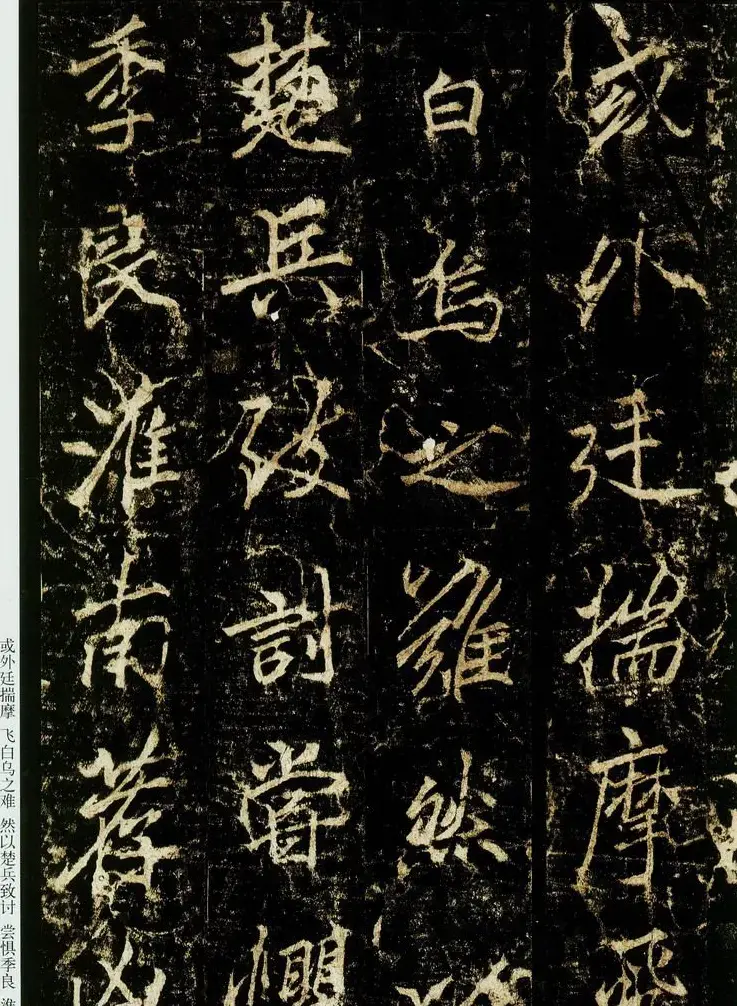 或外廷揣摩飛
白烏之難然以
楚兵致討嘗懼
季良淮南荐凶
或外廷揣摩 飞白乌之难 然以楚兵致讨 尝惧季良 淮